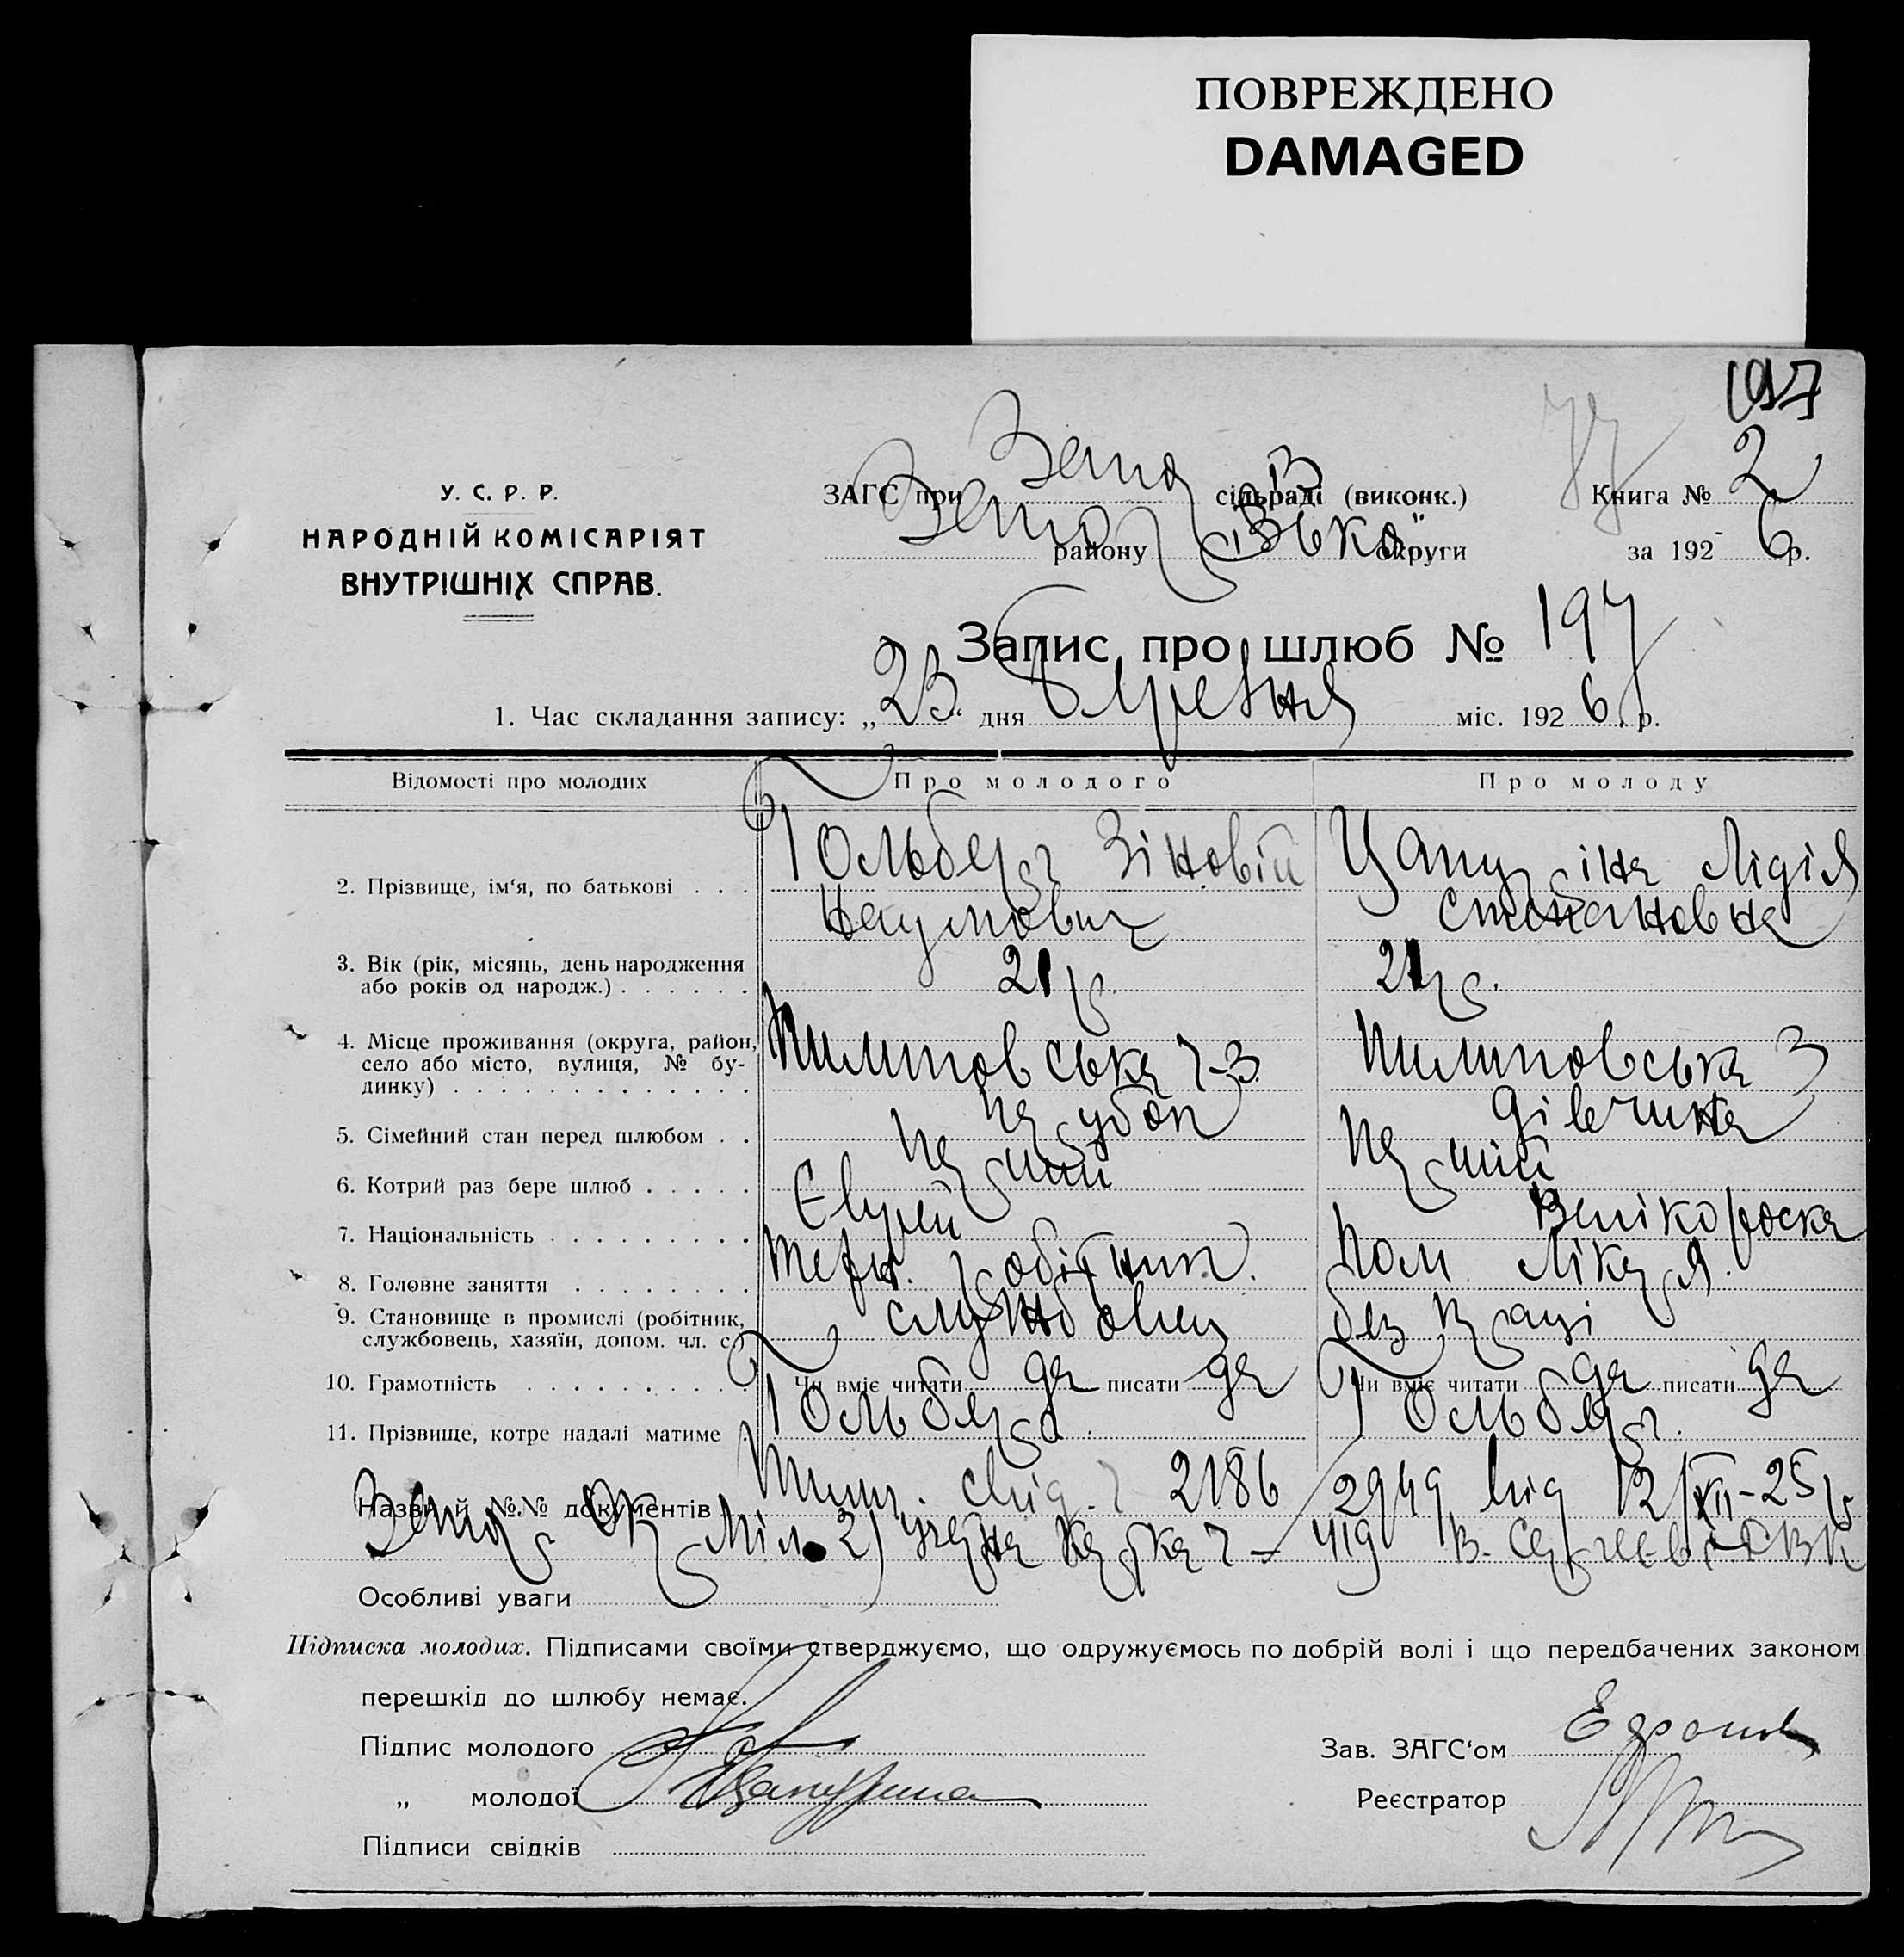 ПОВРЕЖДЕНО
DAMAGED
197
У. С. Р. Р.
НАРОДНІЙ КОМІСАРІЯТ
ВНУТРІШНІХ СПРАВ.
ЗАГС при сільраді (виконк.)
району округи
Книга № 2
за 1926 р.
Запис про шлюб № 197
1. Час складання запису: „23“ дня міс. 1926 р.
Відомості про молодих Про молодого Про молоду
2. Прізвище, ім‘я, по батькові . . . Гольберг Зіновій Цапуріна Лідія
Наумович Степановна
3. Вік (рік, місяць, день народження
або років од народж.) . . . . . . 21 р. 21 р.
4. Місце проживання (округа, район,
село або місто, вулиця, № бу-
динку) . . . . . . . . . . . . . Пилиповська ч-3 Пилиповська 3
5. Сімейний стан перед шлюбом . . парубок дівчина
6. Котрий раз бере шлюб . . . . . перший перший
7. Національність . . . . . . . . . Єврей Велікороска
8. Головне заняття . . . . . . . робітник. пом. лікаря.
9. Становище в промислі (робітник,
службовець, хазяїн, допом. чл. с.) службовець без праці
10. Грамотність . . . . . . . . . . Чи вміє читати да писати да Чи вміє читати да писати да
11. Прізвище, котре надалі матиме Гольберг. Гольберг.
Назви й №.№ документів свід. ч 2186/2949 від 12/XII-25 р
Міл. 2) ка ч - 419
Особливі уваги
Підписка молодих. Підписами своїми стверджуємо, що одружуємось по добрій волі і що передбачених законом
перешкід до шлюбу немає.
Підпис молодого
„ молодої Цапурина
Підписи свідків
Зав. ЗАГС‘ом
Реєстратор